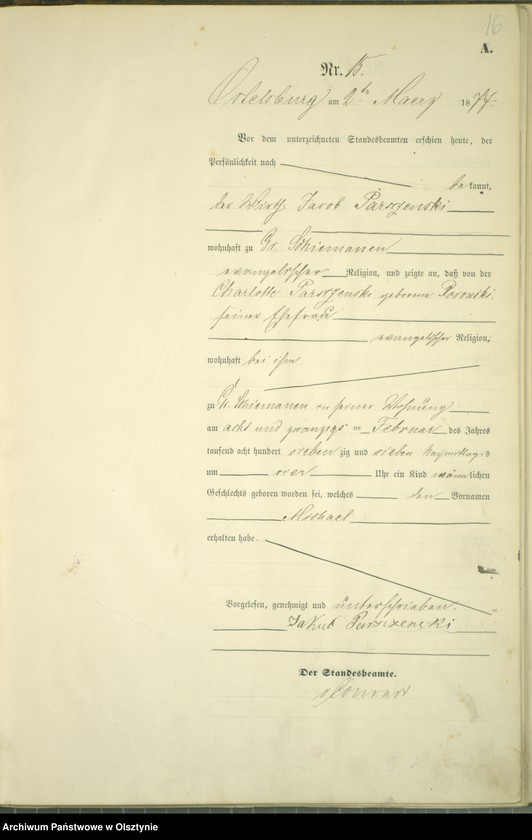 16
A.
Nr. 15.
Ortelsburg am 2ten Maerz 1877.
Vor dem unterzeichneten Standesbeamten erschien heute, der
Persönlichkeit nach
be kannt,
der Wirth Jacob Parszenski
wohnhaft zu Gr. Schiemanen
evangelischer Religion, und zeigte an, daß von der
Charlotte Parszenski geborene
seiner Ehefrau
evangelischer Religion,
wohnhaft bei ihm
zu Gr. Schiemanen in seiner Wohnung
am acht und zwanzigs ten Februar des Jahres
tausend acht hundert sieben zig und sieben Nachmittags
um vier Uhr ein Kind männlichen
Geschlechts geboren worden sei, welches den Vornamen
Michael
erhalten habe.
Vorgelesen, genehmigt und unterschrieben.
Jakub Parszenski
Der Standesbeamte.
Archiwum Państwowe w Olsztynie